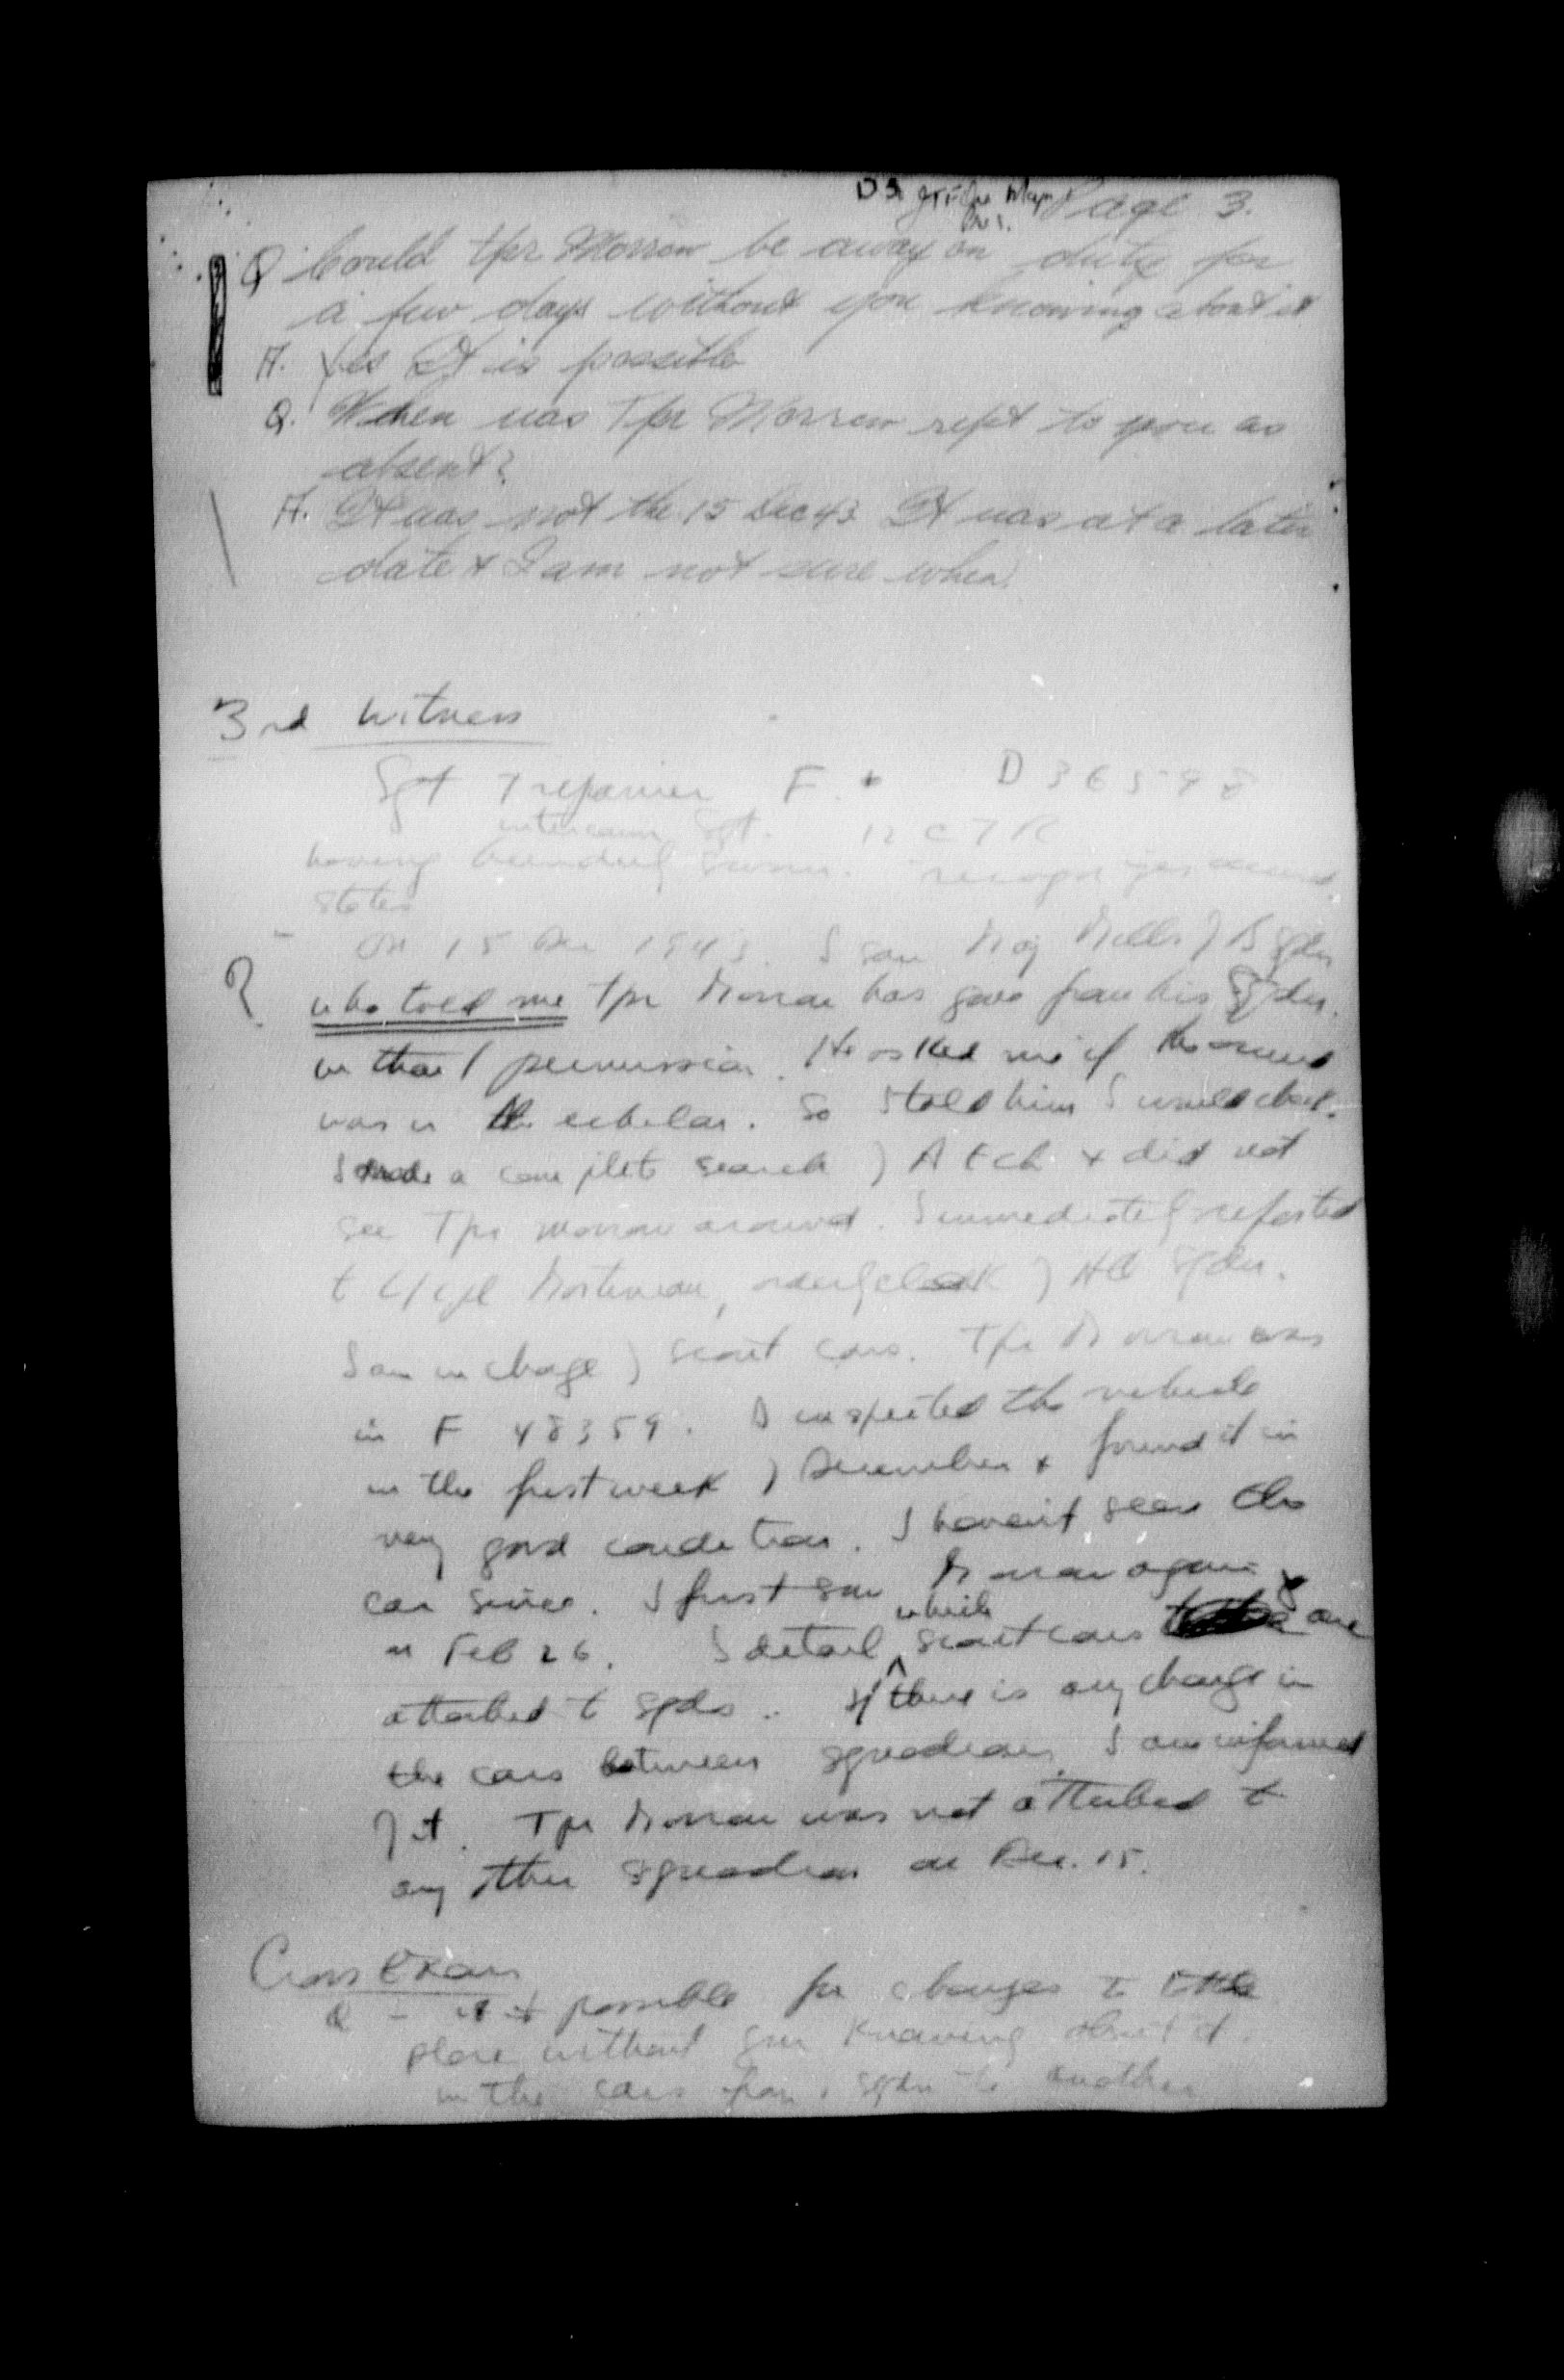 Page 3.
Q Could Tpr Morrow be away on duty for
a few days without you knowing about it
A. Yes It is possible
Q. When was Tpr Morrow rept to you as
absent?
A. It was not the 15 Dec 43 It was at a later
date & I am not sure when.
3rd Witness
Sgt Trepanier F. D 36598
intercomm Sgt. 12 C T R
having been duly sworn recognizes accused
states
On 15 Dec 1943. I saw Maj Mills of B Sqdn
? who told me Tpr Morrow has gone from his Sqdn.
without permission. He asked me if the accused
was in the echelon. So I told him I would check.
I made a complete search of A Ech & did not
see Tpr Morrow around. I immediately reported
to L/Cpl orderly clerk of HQ Sqdn.
I am in charge of scout cars. Tpr Morrow was
in F 48359. I inspected the vehicle
in the first week of December & found it in
very good condition. I haven't seen the
car since. I first saw Morrow again
on Feb 26. I detail which scout cars are
attached to sqdns. If there is any change in
the cars between squadrons I am informed
of it. Tpr Morrow was not attached to
any other squadron on Dec. 15.
Cross Exam
Q - is it possible for changes to take
place without you knowing about it.
in the cars from 1 sqdn to another